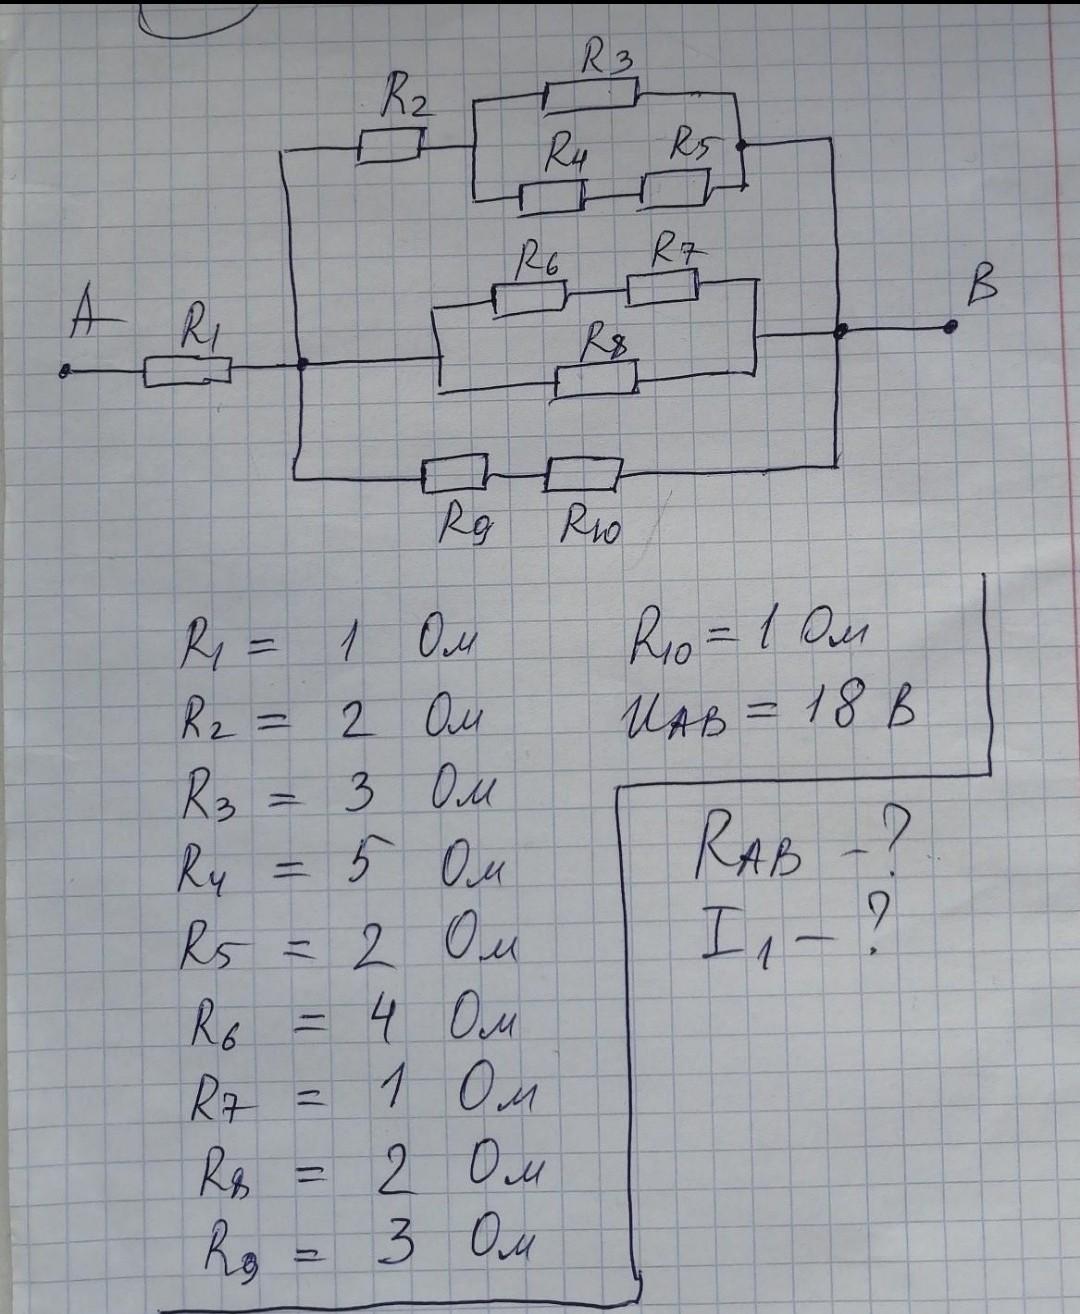 R3
R2
R4 R5
R6 R7
A
R1
R8
B
R9 R10
R1 = 1 Ом
R2 = 2 Ом
R3 = 3 Ом
R4 = 5 Ом
R5 = 2 Ом
R6 = 4 Ом
R7 = 1 Ом
R8 = 2 Ом
R9 = 3 Ом
R10 = 1 Ом
UAB = 18 В
RAB - ?
I1 - ?